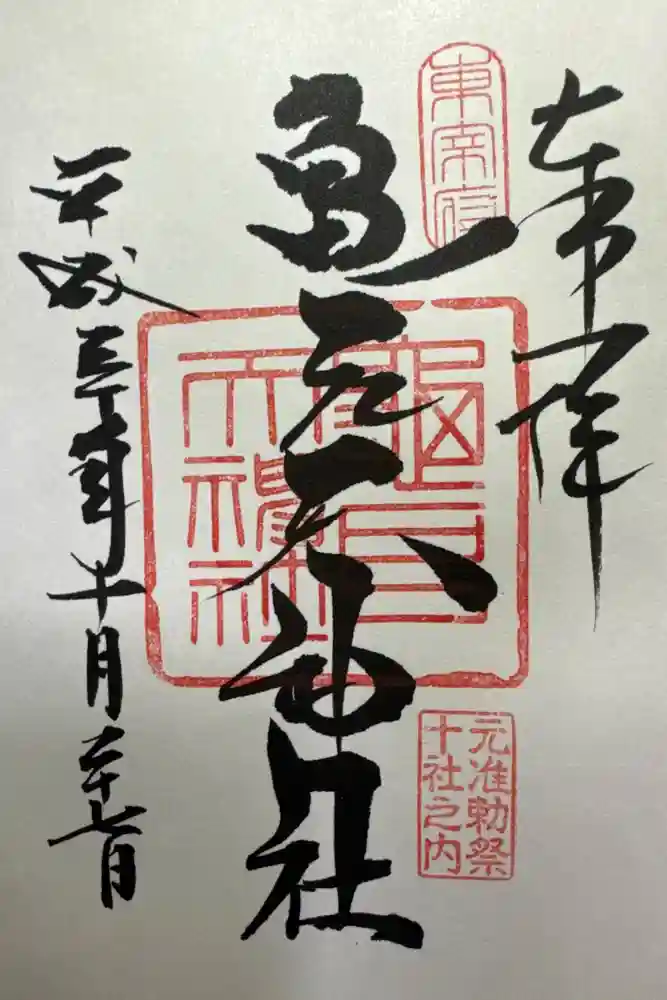 奉拝
東宰府
亀戸天神社
龜戸
天神社
元准勅祭
十社之内
平成三十年十月二十七日